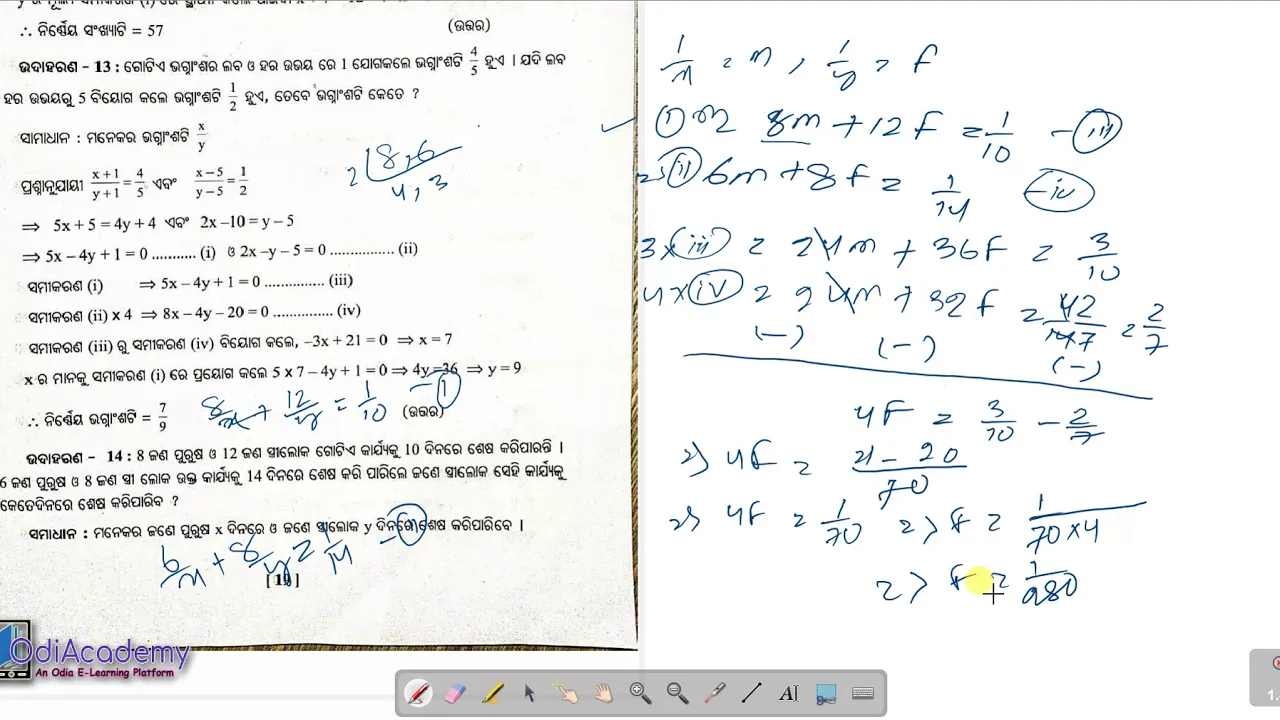 ∴ ନିର୍ଣ୍ଣେୟ ସଂଖ୍ୟାଟି = 57 (ଉତ୍ତର)
ଉଦାହରଣ - 13 : ଗୋଟିଏ ଭଗ୍ନାଂଶର ଲବ ଓ ହର ଉଭୟ ରେ 1 ଯୋଗକଲେ ଭଗ୍ନାଂଶଟି 4/5 ହୁଏ । ଯଦି ଲବ
ହର ଉଭୟରୁ 5 ବିୟୋଗ କଲେ ଭଗ୍ନାଂଶଟି 1/2 ହୁଏ, ତେବେ ଭଗ୍ନାଂଶଟି କେତେ ?
ସାମାଧାନ : ମନେକର ଭଗ୍ନାଂଶଟି x/y
2 | 8, 6
4, 3
ପ୍ରଶ୍ନାନୁଯାୟୀ (x+1)/(y+1) = 4/5 ଏବଂ (x–5)/(y–5) = 1/2
⇒ 5x + 5 = 4y + 4 ଏବଂ 2x –10 = y – 5
⇒ 5x – 4y + 1 = 0 ........... (i) ଓ 2x –y – 5 = 0 ................ (ii)
ସମୀକରଣ (i) ⇒ 5x – 4y + 1 = 0 ............... (iii)
ସମୀକରଣ (ii) × 4 ⇒ 8x – 4y – 20 = 0 ............... (iv)
ସମୀକରଣ (iii) ରୁ ସମୀକରଣ (iv) ବିୟୋଗ କଲେ, –3x + 21 = 0 ⇒ x = 7
x ର ମାନକୁ ସମୀକରଣ (i) ରେ ପ୍ରୟୋଗ କଲେ 5 × 7 – 4y + 1 = 0 ⇒ 4y =36 ⇒ y = 9
8/x + 12/y = 1/10 – (1)
∴ ନିର୍ଣ୍ଣେୟ ଭଗ୍ନାଂଶଟି = 7/9 (ଉତ୍ତର)
ଉଦାହରଣ - 14 : 8 ଜଣ ପୁରୁଷ ଓ 12 ଜଣ ସ୍ତ୍ରୀଲୋକ ଗୋଟିଏ କାର୍ଯ୍ୟକୁ 10 ଦିନରେ ଶେଷ କରିପାରନ୍ତି ।
6 ଜଣ ପୁରୁଷ ଓ 8 ଜଣ ସ୍ତ୍ରୀ ଲୋକ ଉକ୍ତ କାର୍ଯ୍ୟକୁ 14 ଦିନରେ ଶେଷ କରି ପାରିଲେ ଜଣେ ସ୍ତ୍ରୀଲୋକ ସେହି କାର୍ଯ୍ୟକୁ
କେତେଦିନରେ ଶେଷ କରିପାରିବ ?
ସମାଧାନ : ମନେକର ଜଣେ ପୁରୁଷ x ଦିନରେ ଓ ଜଣେ ସ୍ତ୍ରୀଲୋକ y ଦିନରେ ଶେଷ କରିପାରିବେ ।
6/x + 8/y = 1/14 – (ii)
OdiAcademy
An Odia E-Learning Platform
1/x = m, 1/y = f
(1) ⇒ 8m + 12f = 1/10 – (iii)
⇒ (ii) 6m + 8f = 1/14 – (iv)
3 × (iii) = 24m + 36f = 3/10
4 × (iv) = 24m + 32f = 42/147 = 2/7
(–) (–) (–)
4f = 3/10 – 2/7
⇒ 4f = (21 – 20)/70
⇒ 4f = 1/70 ⇒ f = 1/(70×4)
⇒ f = 1/280